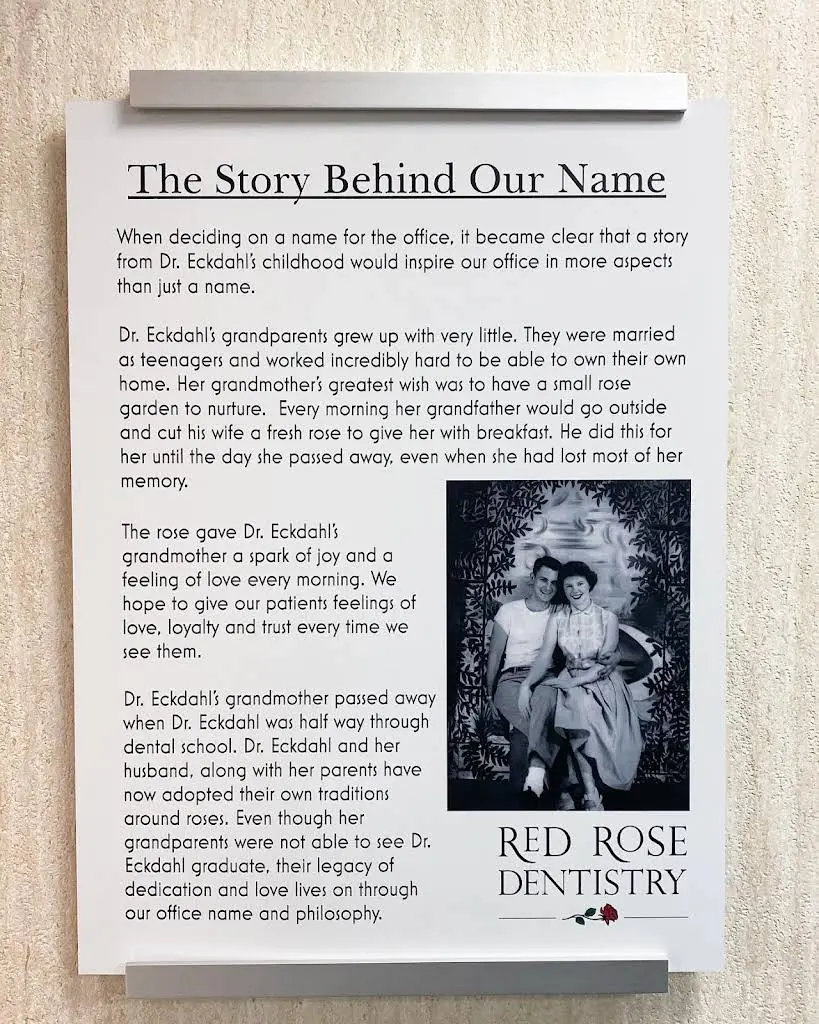 The Story Behind Our Name
When deciding on a name for the office, it became clear that a story
from Dr. Eckdahl's childhood would inspire our office in more aspects
than just a name.
Dr. Eckdahl's grandparents grew up with very little. They were married
as teenagers and worked incredibly hard to be able to own their own
home. Her grandmother's greatest wish was to have a small rose
garden to nurture.  Every morning her grandfather would go outside
and cut his wife a fresh rose to give her with breakfast. He did this for
her until the day she passed away, even when she had lost most of her
memory.
The rose gave Dr. Eckdahl's
grandmother a spark of joy and a
feeling of love every morning. We
hope to give our patients feelings of
love, loyalty and trust every time we
see them.
Dr. Eckdahl's grandmother passed away
when Dr. Eckdahl was half way through
dental school. Dr. Eckdahl and her
husband, along with her parents have
now adopted their own traditions
around roses. Even though her
grandparents were not able to see Dr.
Eckdahl graduate, their legacy of
dedication and love lives on through
our office name and philosophy.
RED ROSE
DENTISTRY